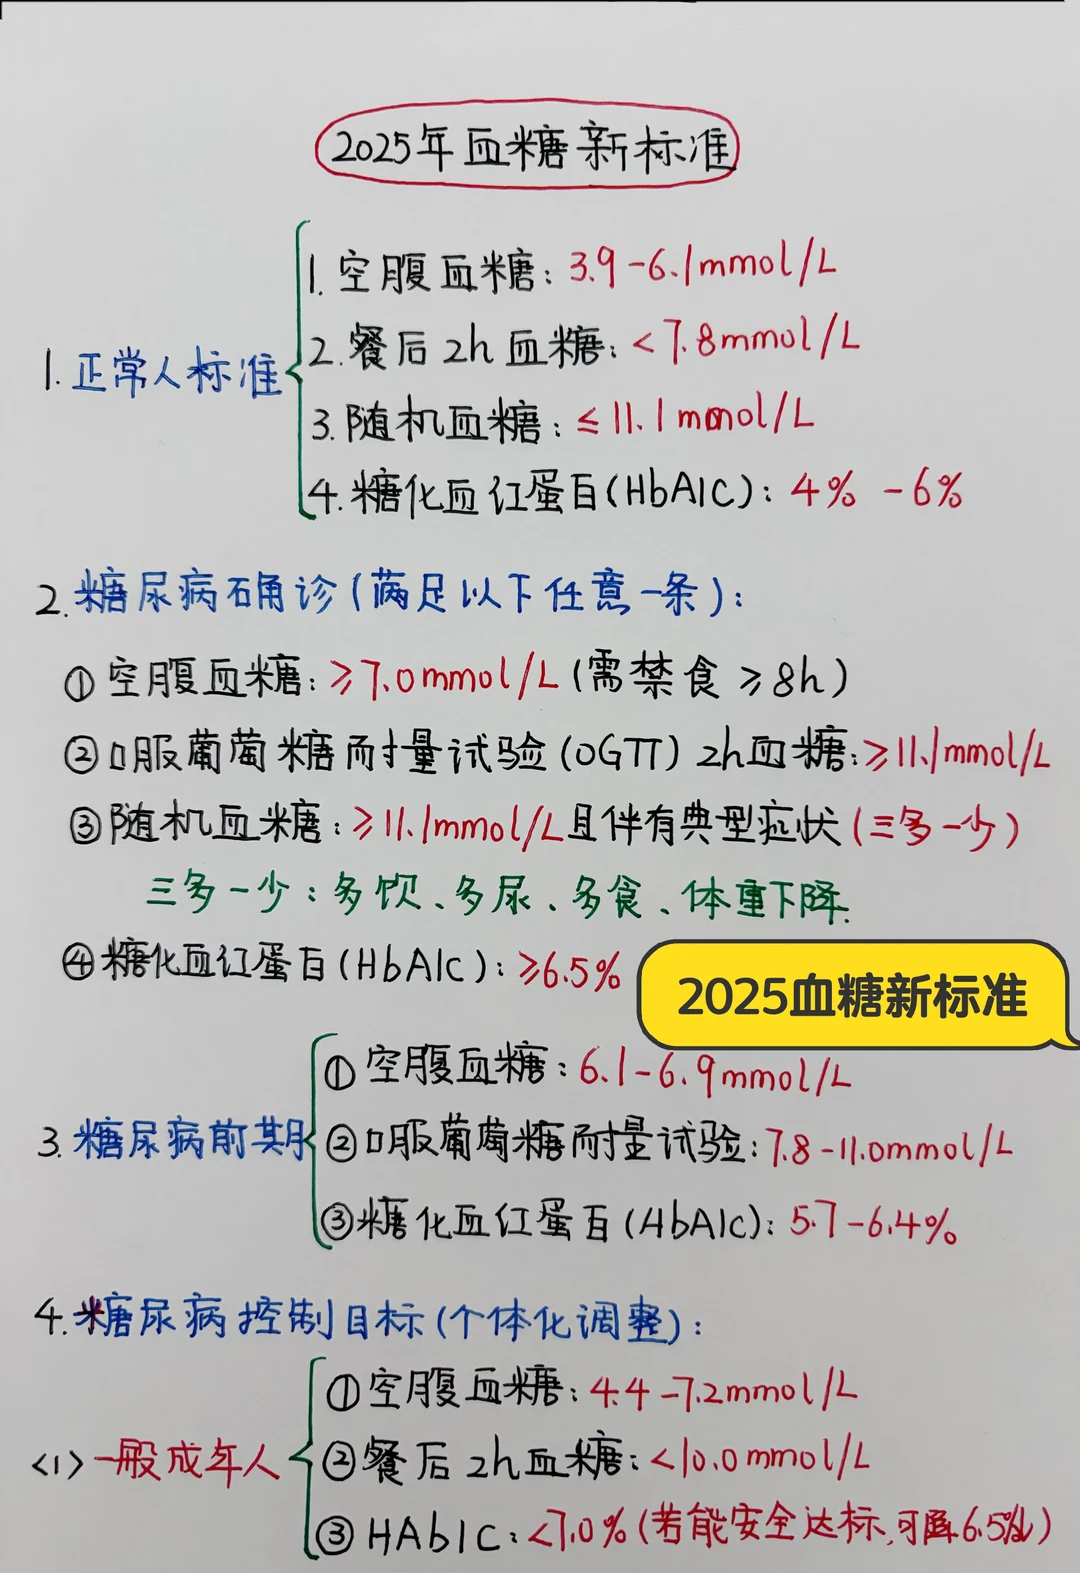 2025年血糖新标准
1.正常人标准
1.空腹血糖：3.9-6.1mmol/L
2.餐后2h血糖：<7.8mmol/L
3.随机血糖：≤11.1mmol/L
4.糖化血红蛋白(HbA1C)：4%-6%
2.糖尿病确诊(满足以下任意一条)：
①空腹血糖：≥7.0mmol/L(需禁食≥8h)
②口服葡萄糖耐量试验(OGTT)2h血糖：≥11.1mmol/L
③随机血糖：≥11.1mmol/L且伴有典型症状(三多一少)
三多一少：多饮、多尿、多食、体重下降.
④糖化血红蛋白(HbA1C)：≥6.5%
2025血糖新标准
3.糖尿病前期
①空腹血糖：6.1-6.9mmol/L
②口服葡萄糖耐量试验：7.8-11.0mmol/L
③糖化血红蛋白(HbA1c)：5.7-6.4%
4.糖尿病控制目标(个体化调整)：
<1>一般成年人
①空腹血糖：4.4-7.2mmol/L
②餐后2h血糖：<10.0mmol/L
③HAb1C：<7.0%(若能安全达标,可降6.5%)